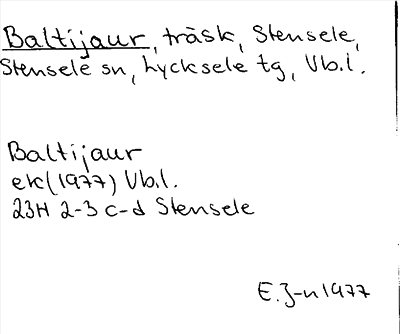 Baltijaur, träsk, Stensele,
Stensele sn, Lycksele tg, Vb.l.
Baltijaur
ek (1977) Vb.l.
23H 2-3 c-d Stensele
E.J-n 1977